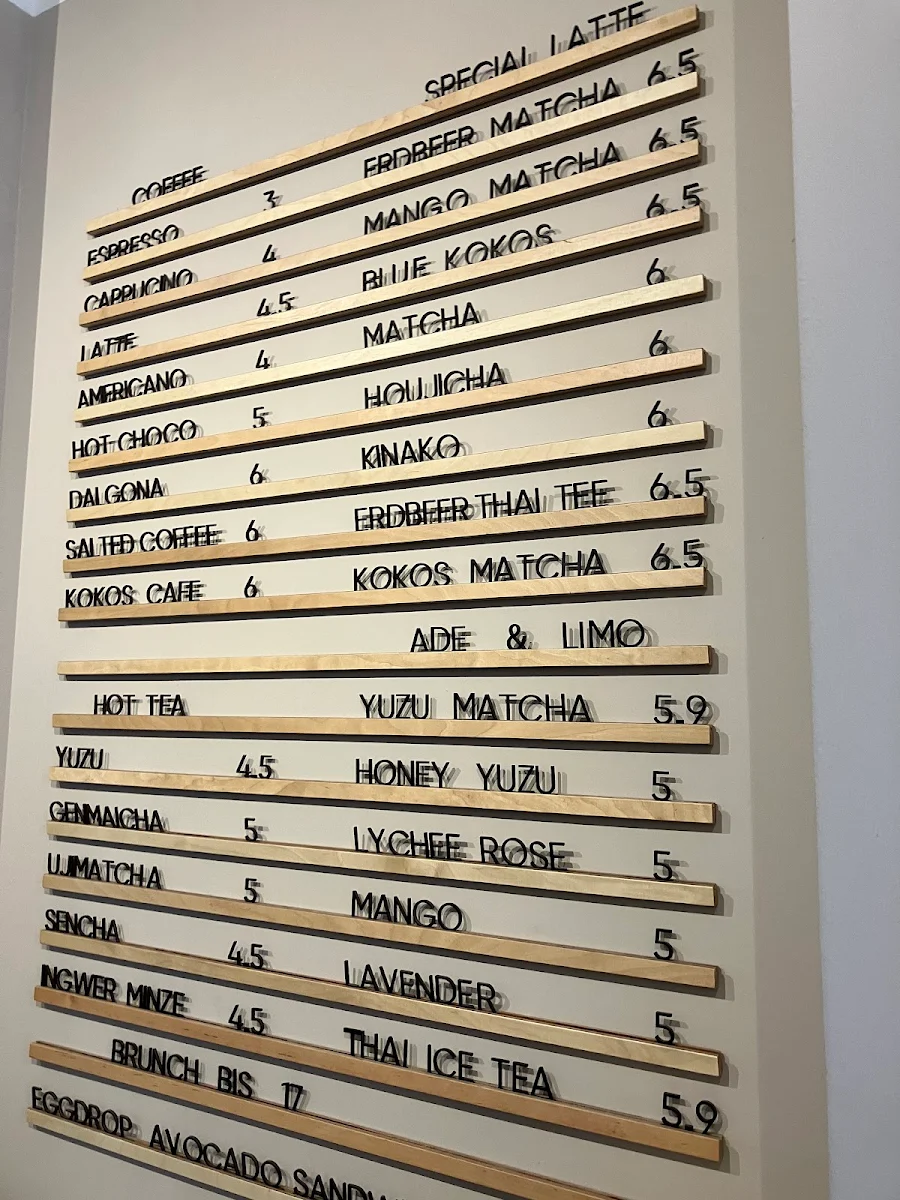 COFFEE
ESPRESSO 3
CAPPUCINO 4
LATTE 4.5
AMERICANO 4
HOT CHOCO 5
DALGONA 6
SALTED COFFEE 6
KOKOS CAFE 6
HOT TEA
YUZU 4.5
GENMAICHA 5
UJIMATCHA 5
SENCHA 4.5
INGWER MINZE 4.5
SPECIAL LATTE
ERDBEER MATCHA 6.5
MANGO MATCHA 6.5
BLUE KOKOS 6.5
MATCHA 6
HOUJICHA 6
KINAKO 6
ERDBEER THAI TEE 6.5
KOKOS MATCHA 6.5
ADE & LIMO
YUZU MATCHA 5.9
HONEY YUZU 5
LYCHEE ROSE 5
MANGO 5
LAVENDER 5
THAI ICE TEA 5.9
BRUNCH BIS 17
EGGDROP AVOCADO